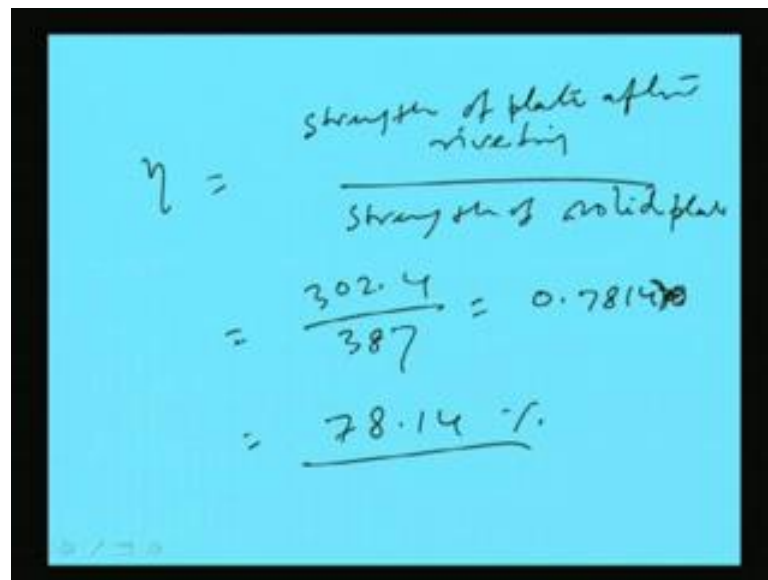 strength of plate after
riveting
η =
strength of solid plate
= 302.4 / 387 = 0.7814
= 78.14 %